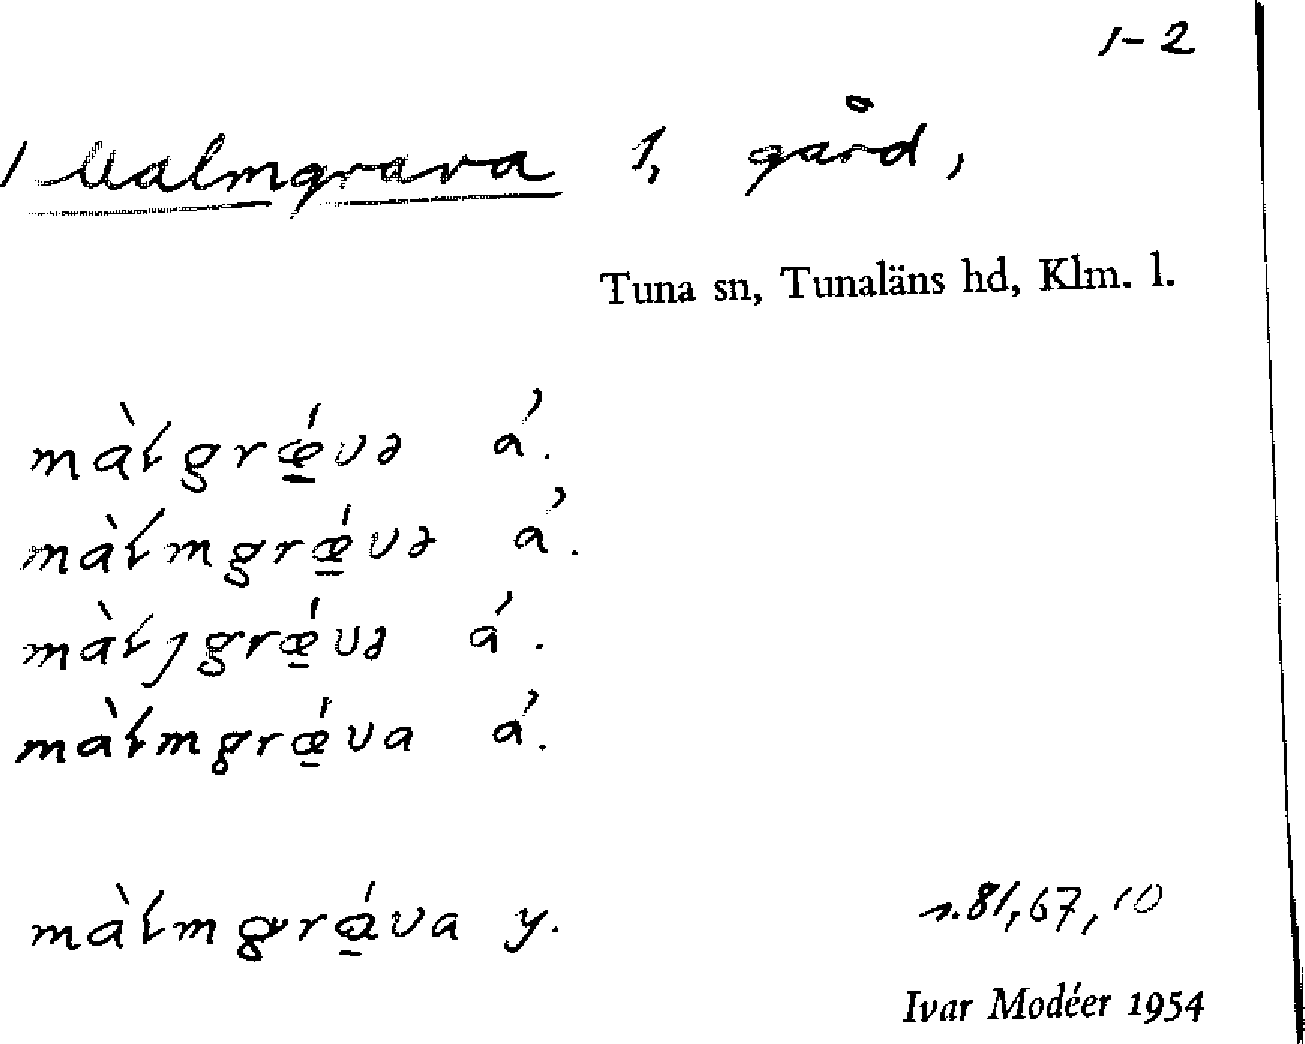 1-2
Malmgrava 1, gård,
Tuna sn, Tunaläns hd, Klm. l.
màłgrǽ̱və á.
màłmgrǽ̱və á.
màłȷgrǽ̱və á.
màłmgrǽ̱va á.
màłmgrá̱va y.
s. 81, 67, 10
Ivar Modéer 1954